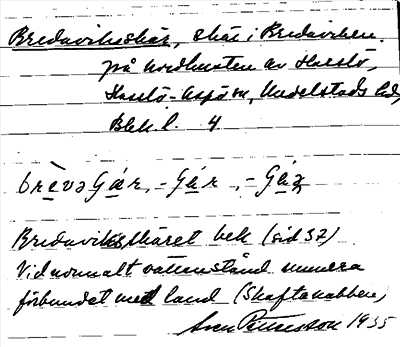 Bredaviksskär, skär i Bredaviken
på nordkusten av Hasslö,
Hasslö-Aspö sn, Medelstads hd,
Blek. l. 4
brèvəgár, -Gár, -Gáʒ
Bredaviksskäret bek (sid 32)
Vid normalt vattenstånd numera
förbundet med land (Skaftanabben)
Sven Petersson 1935